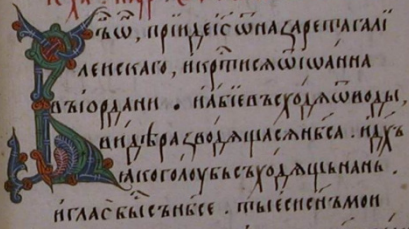 ъѿ, прїиде іс҃ ѿ назарета галї
леискаго, и кр҃тися ѿ іѡанна
въ іордани . и абїе въсходя ѿ воды,
види ра́зводящася нб҃са . и дх҃ъ
ꙗко голоубь съходящь нань .
и глас бы́ съ нб҃се . ты еси сн҃ъ мои